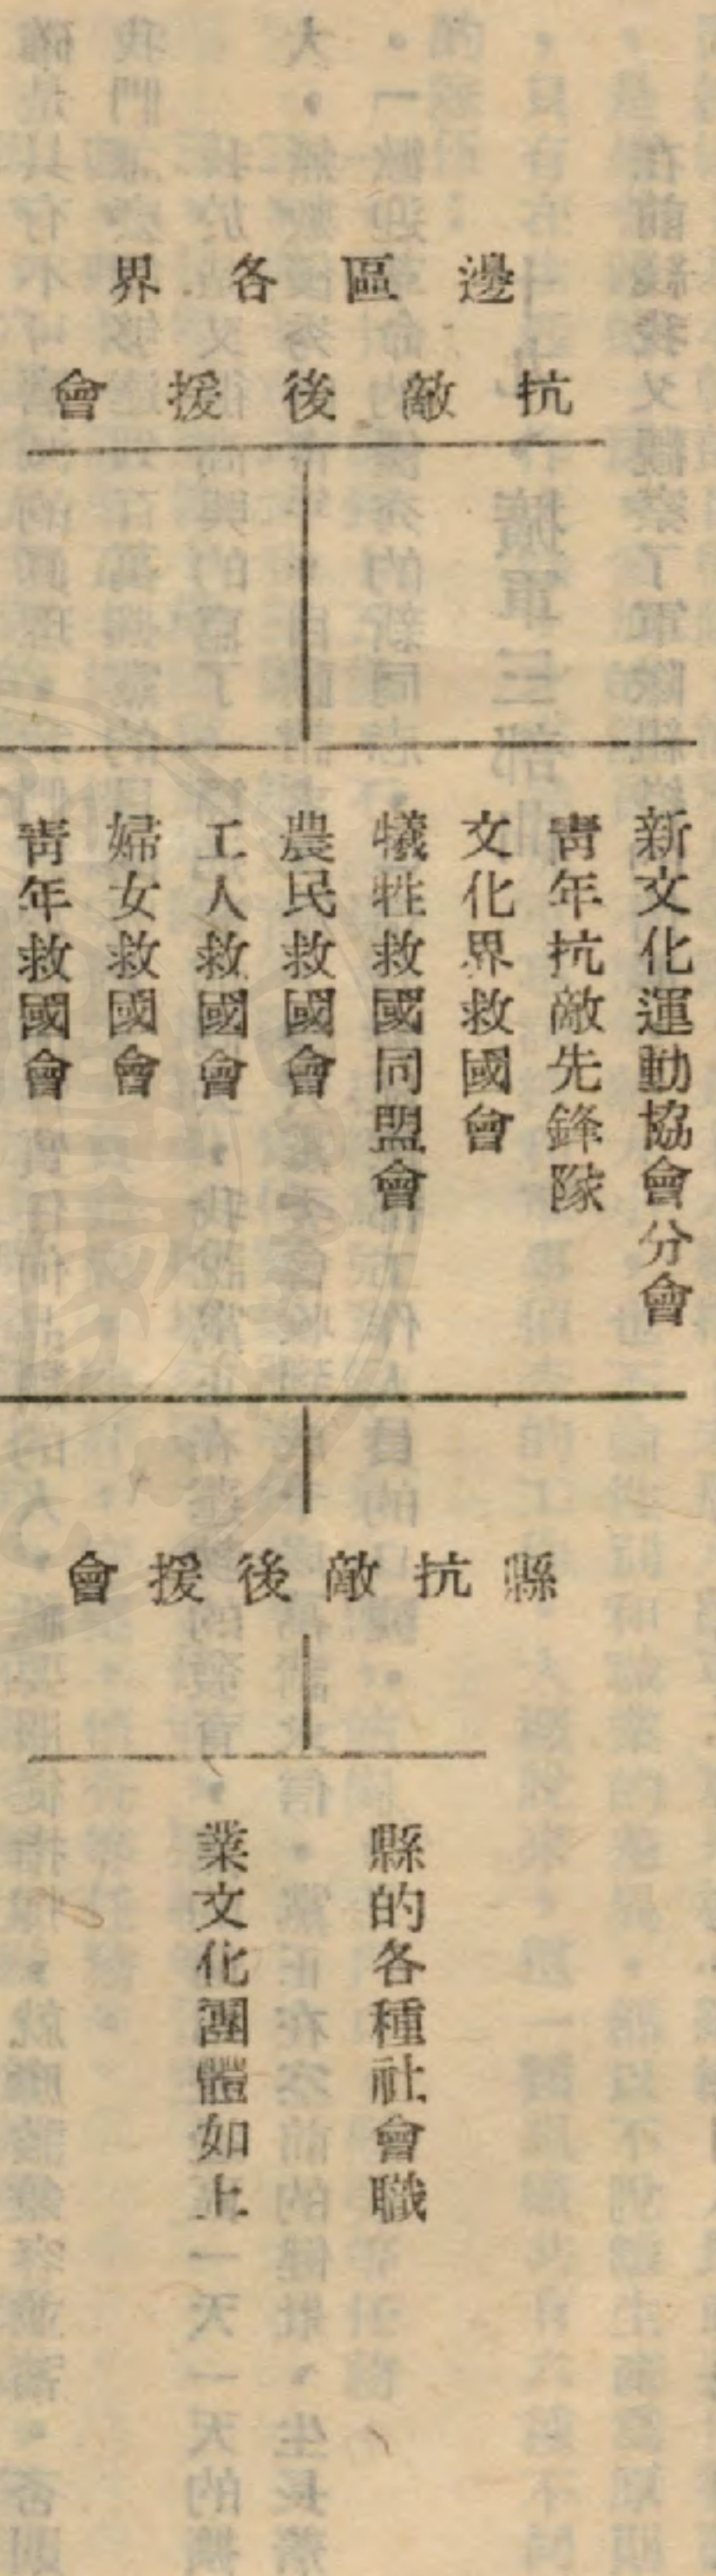 邊區各界
抗敵後援會
新文化運動協會分會
青年抗敵先鋒隊
文化界救國會
犧牲救國同盟會
農民救國會
工人救國會
婦女救國會
青年救國會
縣抗敵後援會
縣的各種社會職
業文化團體如上